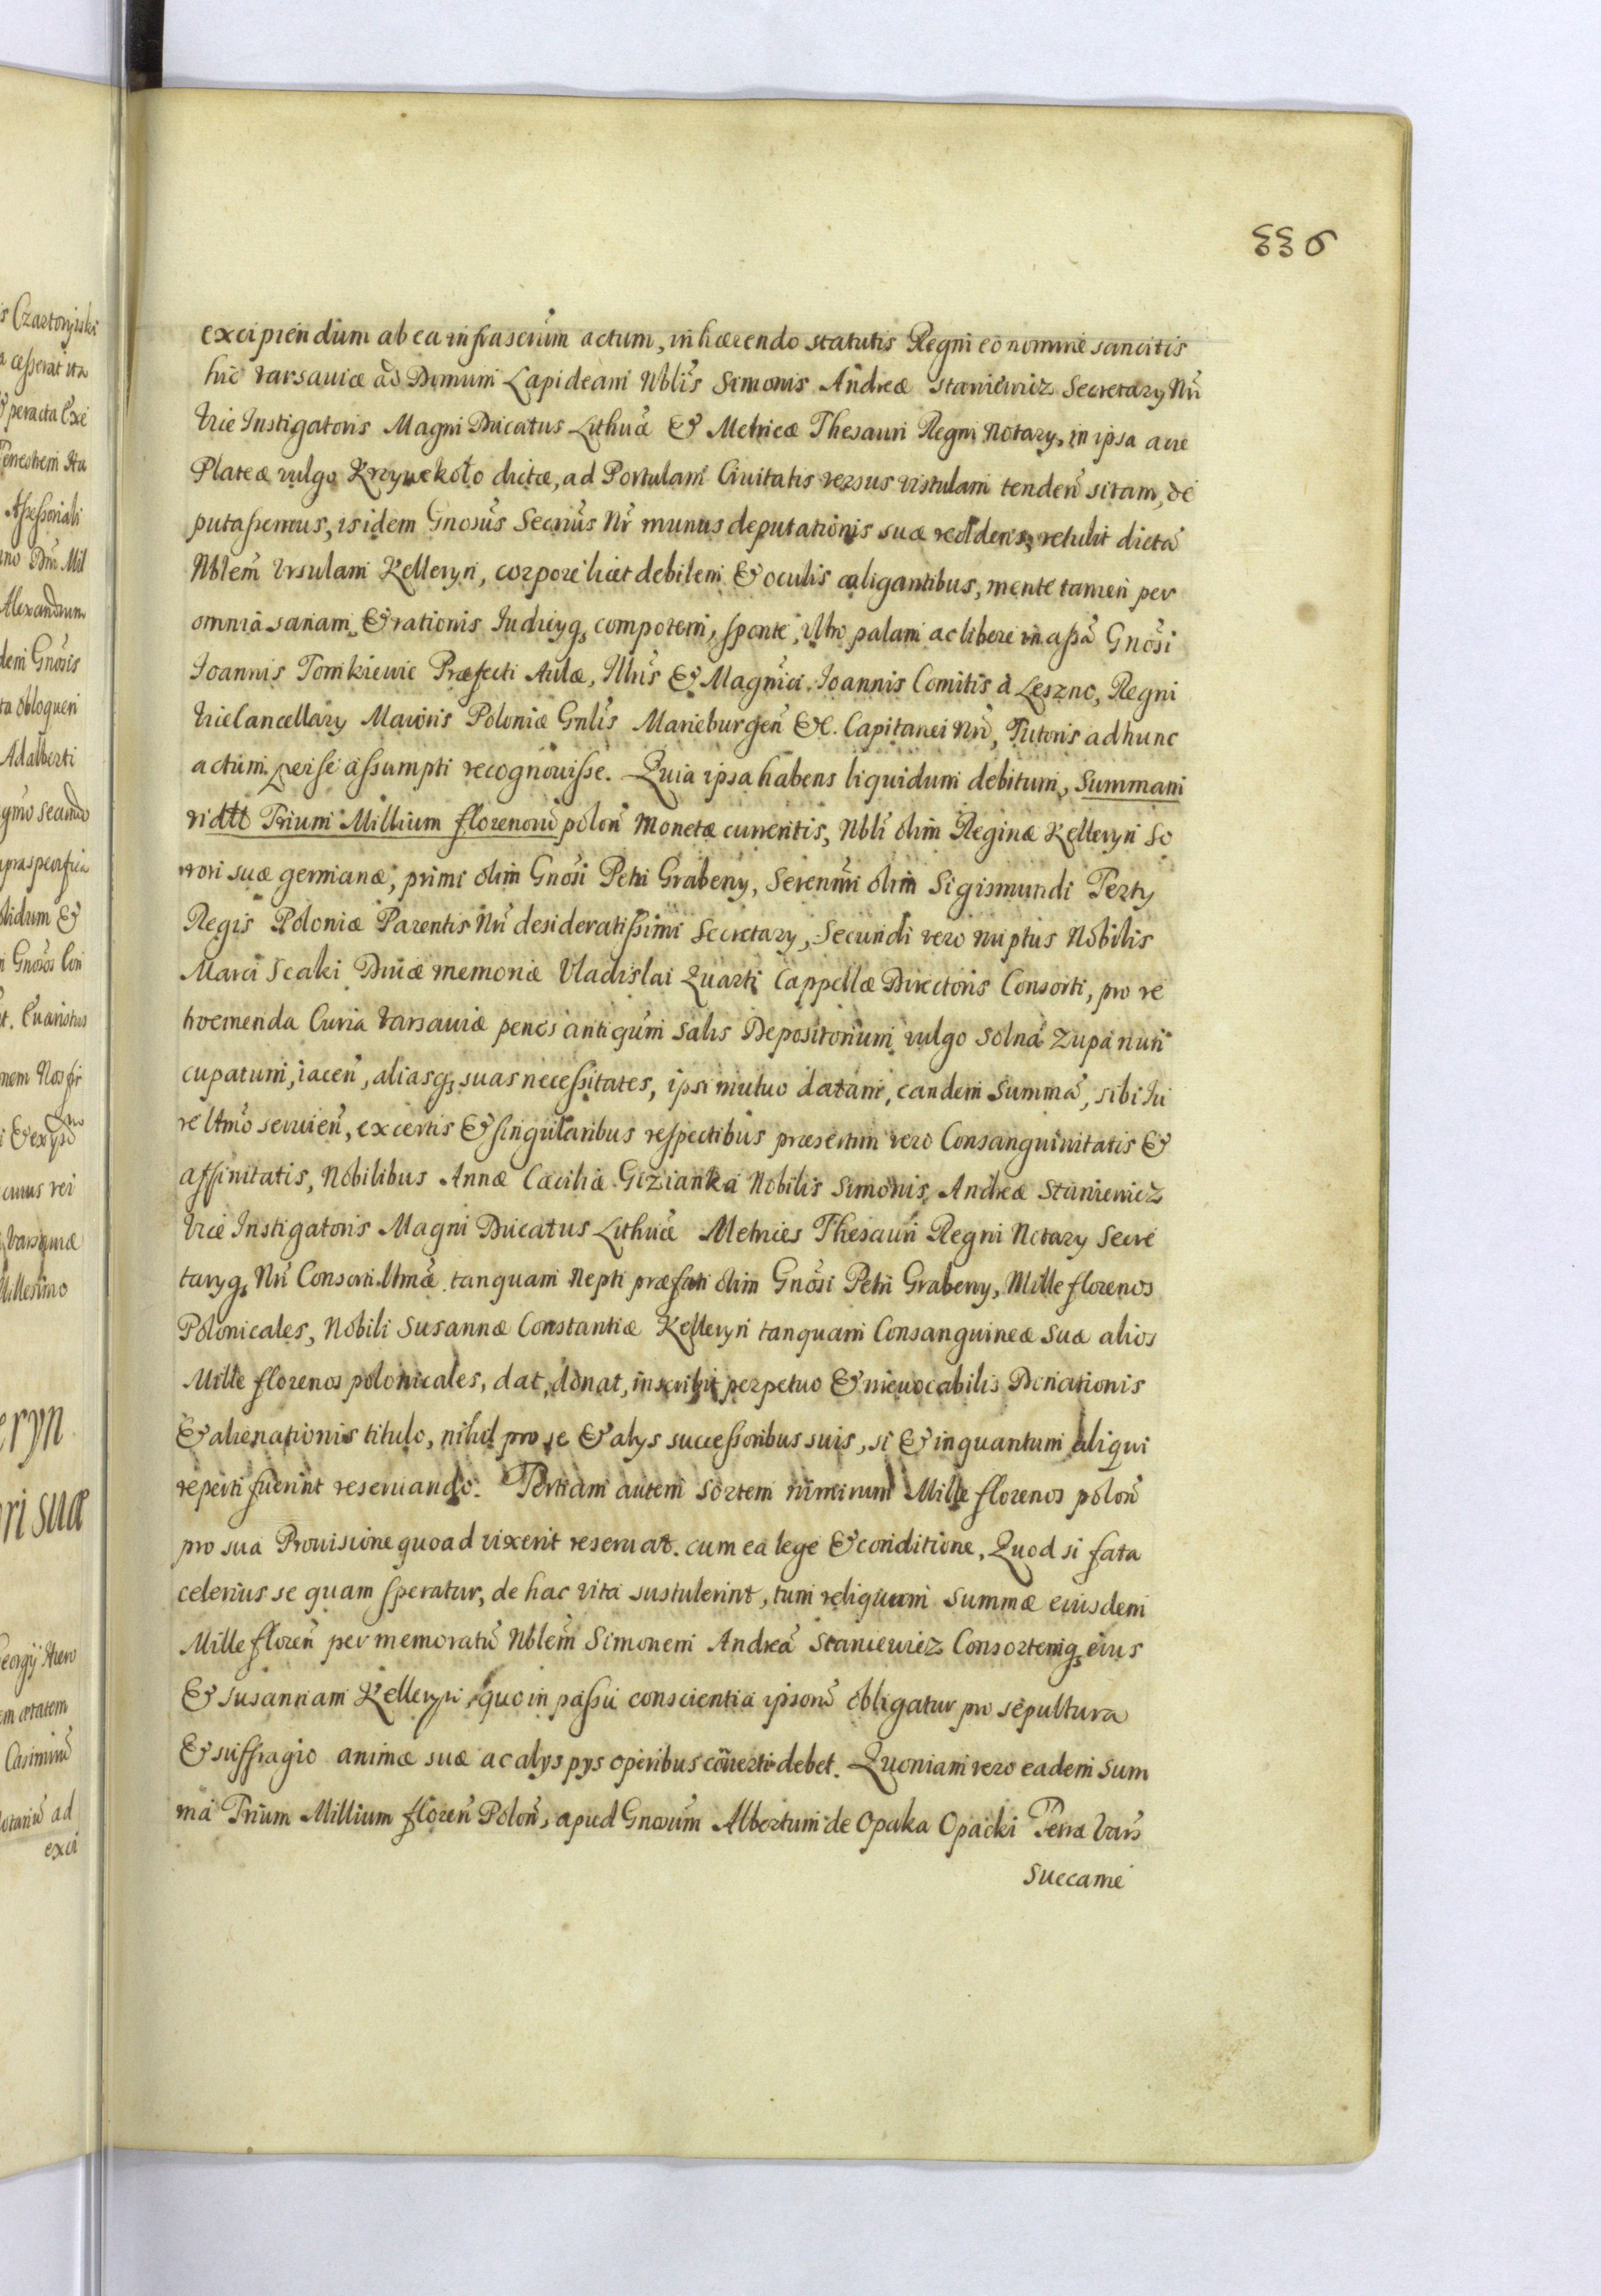 336
excipiendum ab ea infrascrūm actum, inhærendo statutis Regni eo nomine sancitis
hic Varsaviæ ad Domum Lapideam Nblis Simonis Andreæ Staniewicz Secretary Nri
Vice Instigatoris Magni Ducatus Lithuæ & Metricæ Thesauri Regni Notary, in ipsa acie
Plateæ vulgo Krzywekoło dictæ, ad Portulam Civitatis versus Vistulam tenden sitam, de
putassemus, is idem Gnosus Secrius Nr munus deputationis suæ reddens, retulit dictā
Nblem Ursulam Kelleryn, corpore licet debilem & oculis caligantibus, mente tamen per
omnia sanam, & rationis Iudicyq, compotem, sponte, Ultro palam ac libere in assā Gnosi
Ioannis Tomkiewic Præfecti Aulæ, Illris & Magnici Ioannis Comitis à Leszno, Regni
Vicecancellary Maioris Poloniæ Gnlis Marieburgen &c. Capitanei Nri, Tutoris ad hunc
actum per se assumpti recognovisse. Quia ipsa habens liquidum debitum, Summam
vidtt Trium Millium florenorū polon Monetæ currentis, Nbli olim Reginæ Kelleryn So
rori suæ germanæ, primi olim Gnosi Petri Grabeny, Serenmi olim Sigismundi Terty
Regis Poloniæ Parentis Nri desideratissimi Secretary, Secundi vero nuptus Nobilis
Marci Scaki Divæ memoriæ Vladislai Quarti Cappellæ Directoris Consorti, pro re
troemenda Curia Varsaviæ penes antiqūm Salis Depositorium vulgo Solna Zupa nun
cupatum, iacen, aliasq, suas necessitates, ipsi mutuo datam, eandem Summā, sibi Iu
re Utmo servien, ex certis & singularibus respectibus præsertim vero Consanguinitatis &
affinitatis, Nobilibus Annæ Cæciliæ Gizianka Nobilis Simonis Andreæ Staniewicz
Vice Instigatoris Magni Ducatus Lithuæ Metrices Thesauri Regni Notary Secre
taryq, Nri Consorti Utmæ tanquam Nepti præfati olim Gnosi Petri Grabeny, Mille florenos
Polonicales, Nobili Susannæ Constantiæ Kelleryn tanquam Consanguineæ Suæ alios
Mille florenos polonicales, dat, donat, inscribit perpetuo & irrevocabilis Donationis
& alienationis titulo, nihil pro se & alys successoribus suis, si & inquantum aliqui
reperti fuerint reservando. Tertiam autem Sortem nimirum Mille florenos polon
pro sua Provisione quoad vixerit reservat. cum ea lege & conditione, Quod si fata
celerius se quam speratur, de hac vita sustulerint, tum reliquum Summæ eiusdem
Mille floren per memoratū Nblem Simonem Andreā Staniewicz Consortemq, eius
& Susannam Kelleryn, quo in passu conscientia ipsorū obligatur pro sepultura
& suffragio animæ suæ ac alys pys operibus cōverti debet. Quoniam vero eadem Sum
ma Trium Millium floren Polon, apud Gnosum Albertum de Opaka Opacki Terræ Vars
Succame